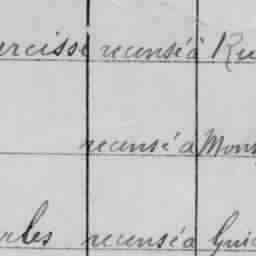 arcisse recensé à Ru
recensé à Mons
arles recensé à Gui